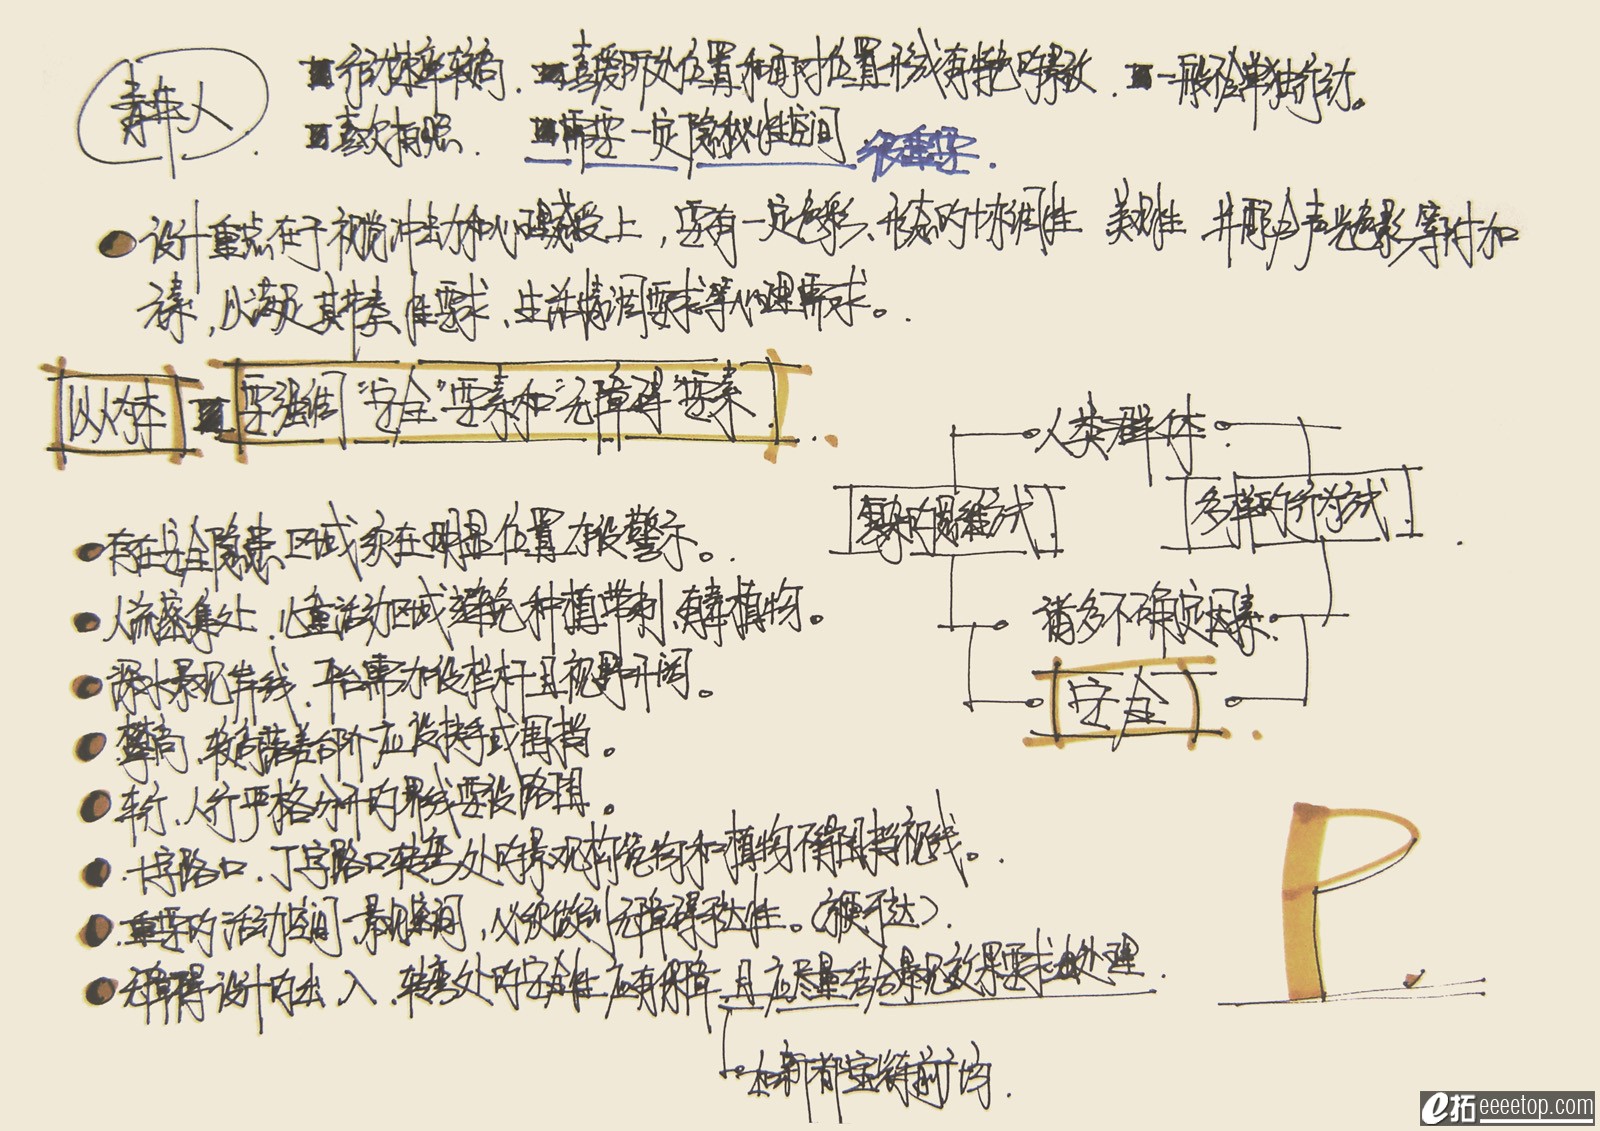 青年人
■行动速率较高. ■喜爱所处位置和面对位置形成有特色的景致. ■一般会单独行动。
■喜欢拍照. ■需要一定隐秘性空间 很重要.
●设计重点在于视觉冲击力和心理感受上,要有一定色彩、形态的协调性 美观性 并配合声光色影等附加
元素,以满足其 性要求、生活情调要求等心理需求。
以人为本 ■要强调“安全”要素和“无障碍”要素
人类群体
复杂的思维方式 多样的行为方式
诸多不确定因素
安全
●存在安全隐患区域须在明显位置存设警示。
●人流密集处、儿童活动区域避免种植带刺、有毒植物。
●深水景观岸线、平台需加设栏杆且视野开阔。
●攀高、较高落差台阶应设扶手或围挡。
●车行、人行严格分开的界线要设路阻。
●十字路口、丁字路口转弯处的景观构筑物和植物不得阻挡视线。
●重要的活动空间、景观空间,必须做到无障碍可达性。(便于达).
●无障碍设计的出入、转弯处的安全性应有保障 且应尽量结合景观效果要求去处理.
如新都宝 前广场.
P
e拓 eeeetop.com